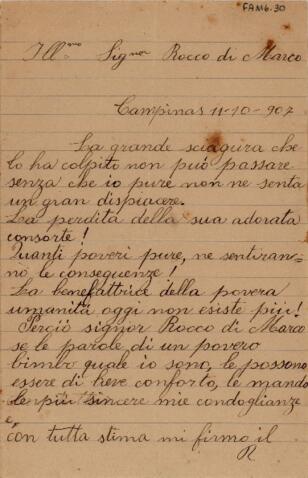 FAM6.30
Ill.mo Signor Rocco di Marco
Campinas 11-10-907
La grande sciagura che
lo ha colpito non può passare
senza che io pure non ne senta
un gran dispiacere.
La perdita della sua adorata
consorte!
Quanti poveri pure, ne sentiran-
no le conseguenze!
La benefattrice della povera
umanità oggi non esiste più!
Perciò signor Rocco di Marco
se le parole di un povero
bimbo quale io sono, le possono
essere di lieve conforto, le mando
le più sincere mie condoglianze
e,
con tutta stima mi firmo il
R